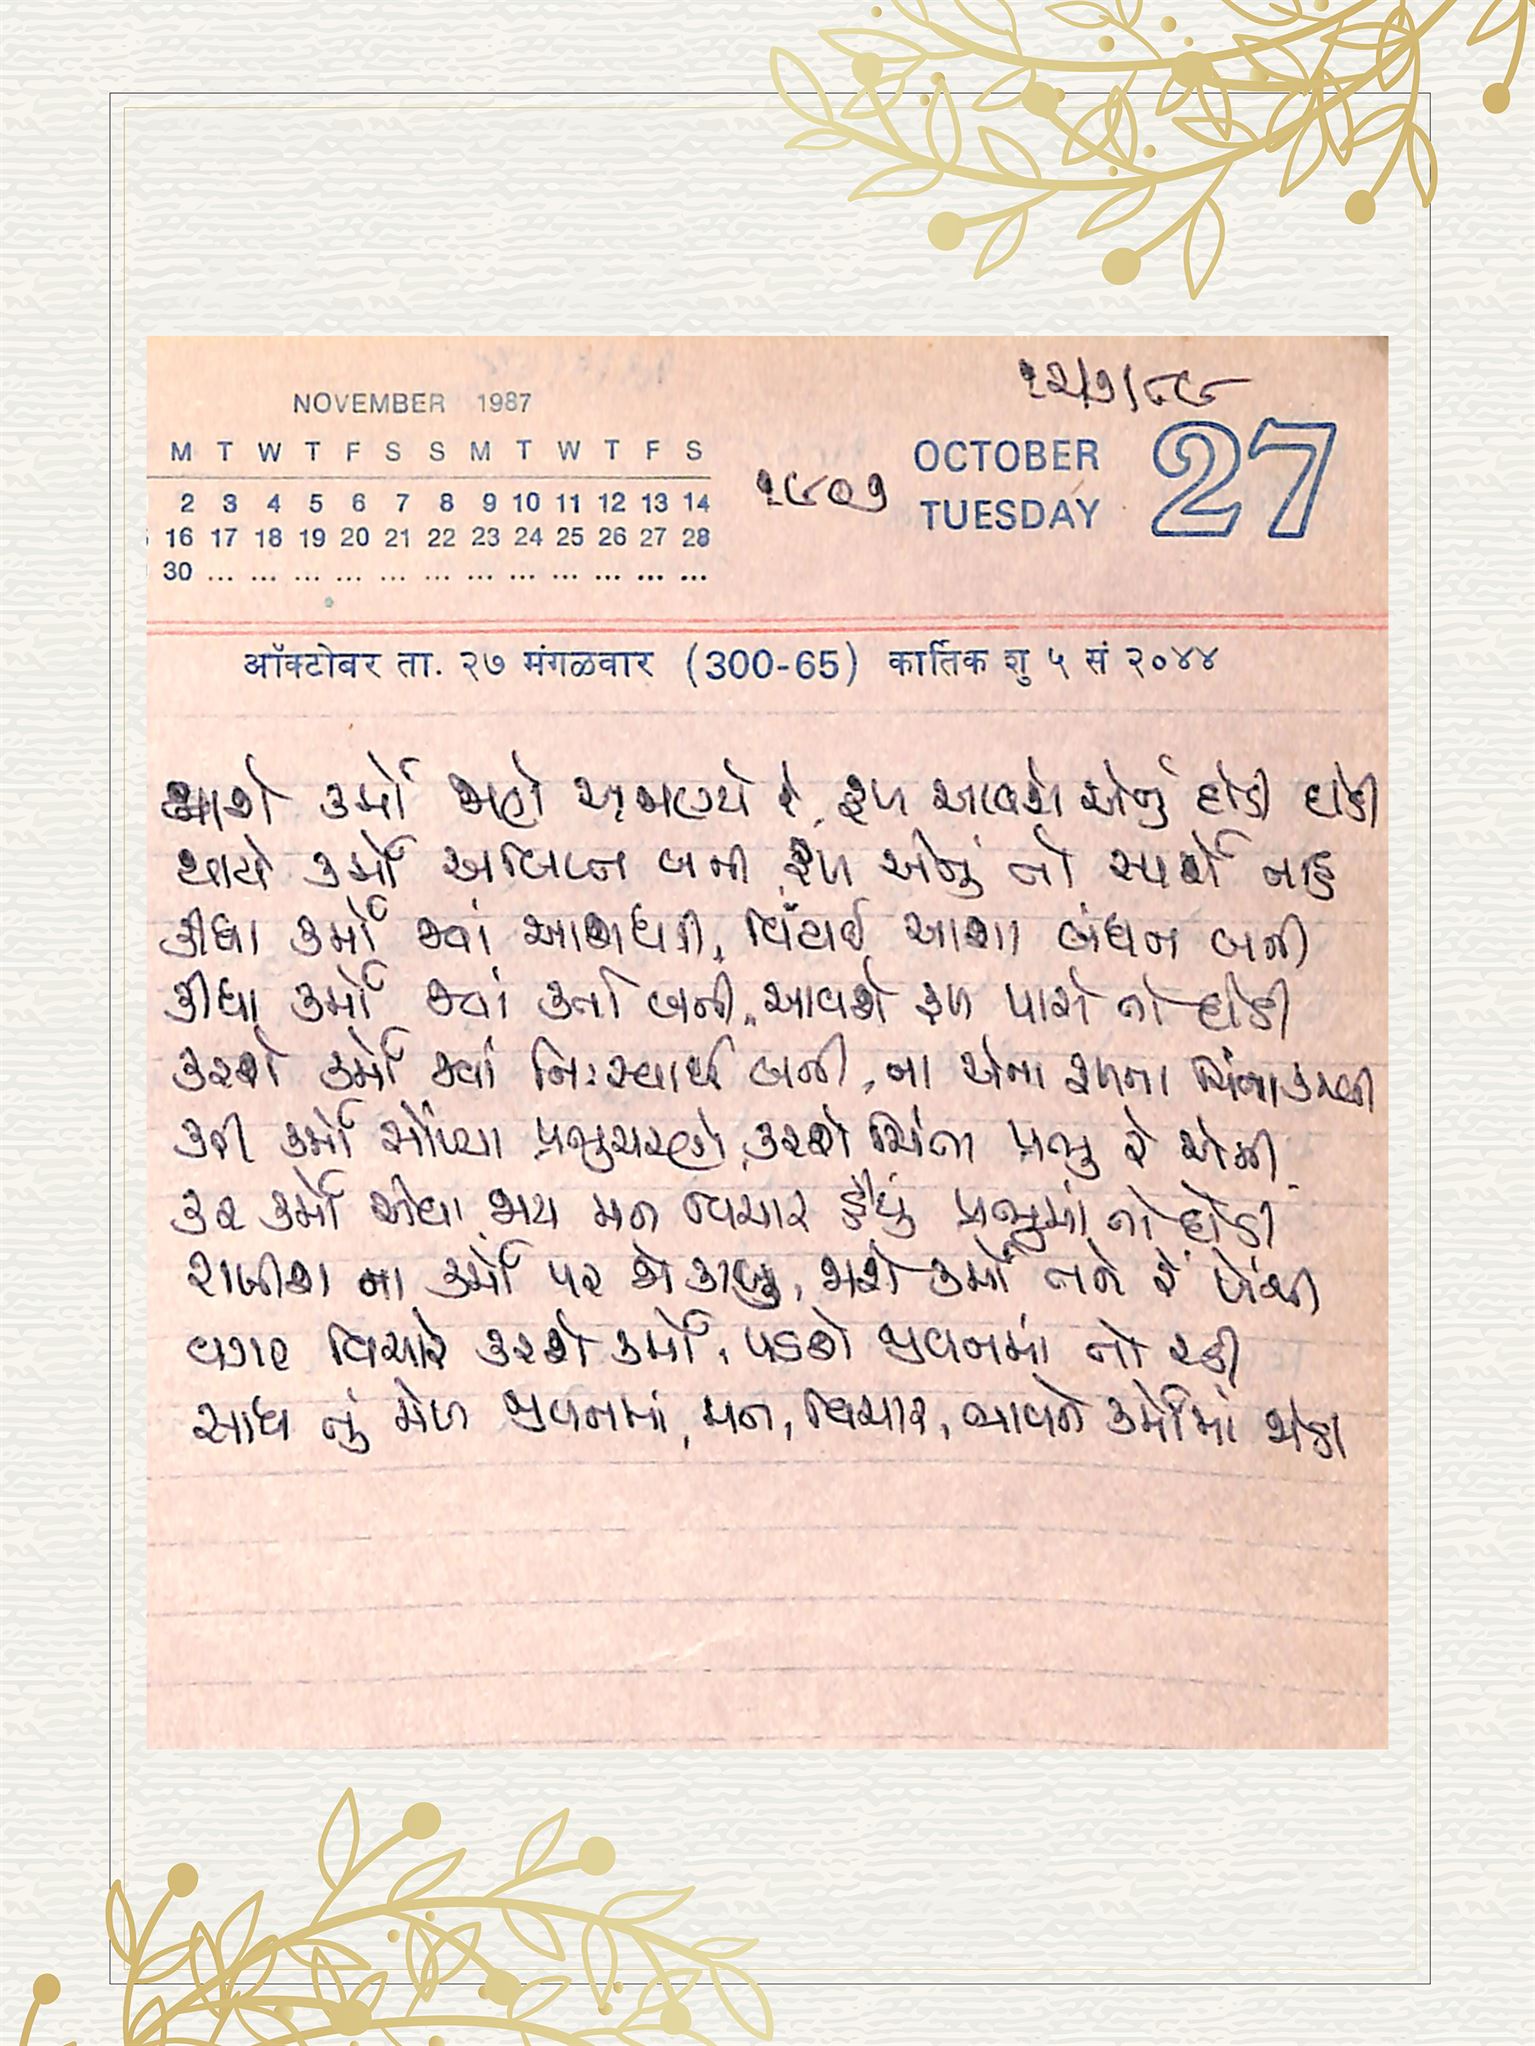 ૧૨/૭/૮૯
NOVEMBER 1987
M T W T F S S M T W T F S
2 3 4 5 6 7 8 9 10 11 12 13 14
16 17 18 19 20 21 22 23 24 25 26 27 28
30 ... ... ... ... ... ... ... ... ... ... ... ...
૧૯૦૭
OCTOBER 27
TUESDAY
ऑक्टोबर ता. २७ मंगळवार (300-65) कार्तिक शु ५ सं २०४४
થાશે કર્મો જાણે અજાણ્યે રે, ફળ આવશે એનું દોડી દોડી
થાયે કર્મો અલિપ્ત બની, ફળ એનું તો સ્પર્શે નહિ
કીધા કર્મો જ્યાં આશાધરી, વિંટાઈ આશા બંધન બની
કીધા કર્મો જ્યાં કર્તા બની, આવશે ફળ પાસે તો દોડી
કરશે કર્મો જ્યાં નિઃસ્વાર્થ બની, ના એના ફળના ચિંતા કરવી
કરી કર્મો સોંપ્યા પ્રભુચરણે, કરશે ચિંતા પ્રભુ રે એની
કર કર્મો એવા, જાય મન વિચાર હૈયું પ્રભુમાં તો દોડી
રાખીશ ના કર્મો પર જો કાબૂ, જાશે કર્મો તને રે ખેંચી
વગર વિચારે કરશે કર્મો, પડશે જીવનમાં તો રડી
સાધ તું મેળ જીવનમાં, મન, વિચાર, ભાવને કર્મોમાં થોડા